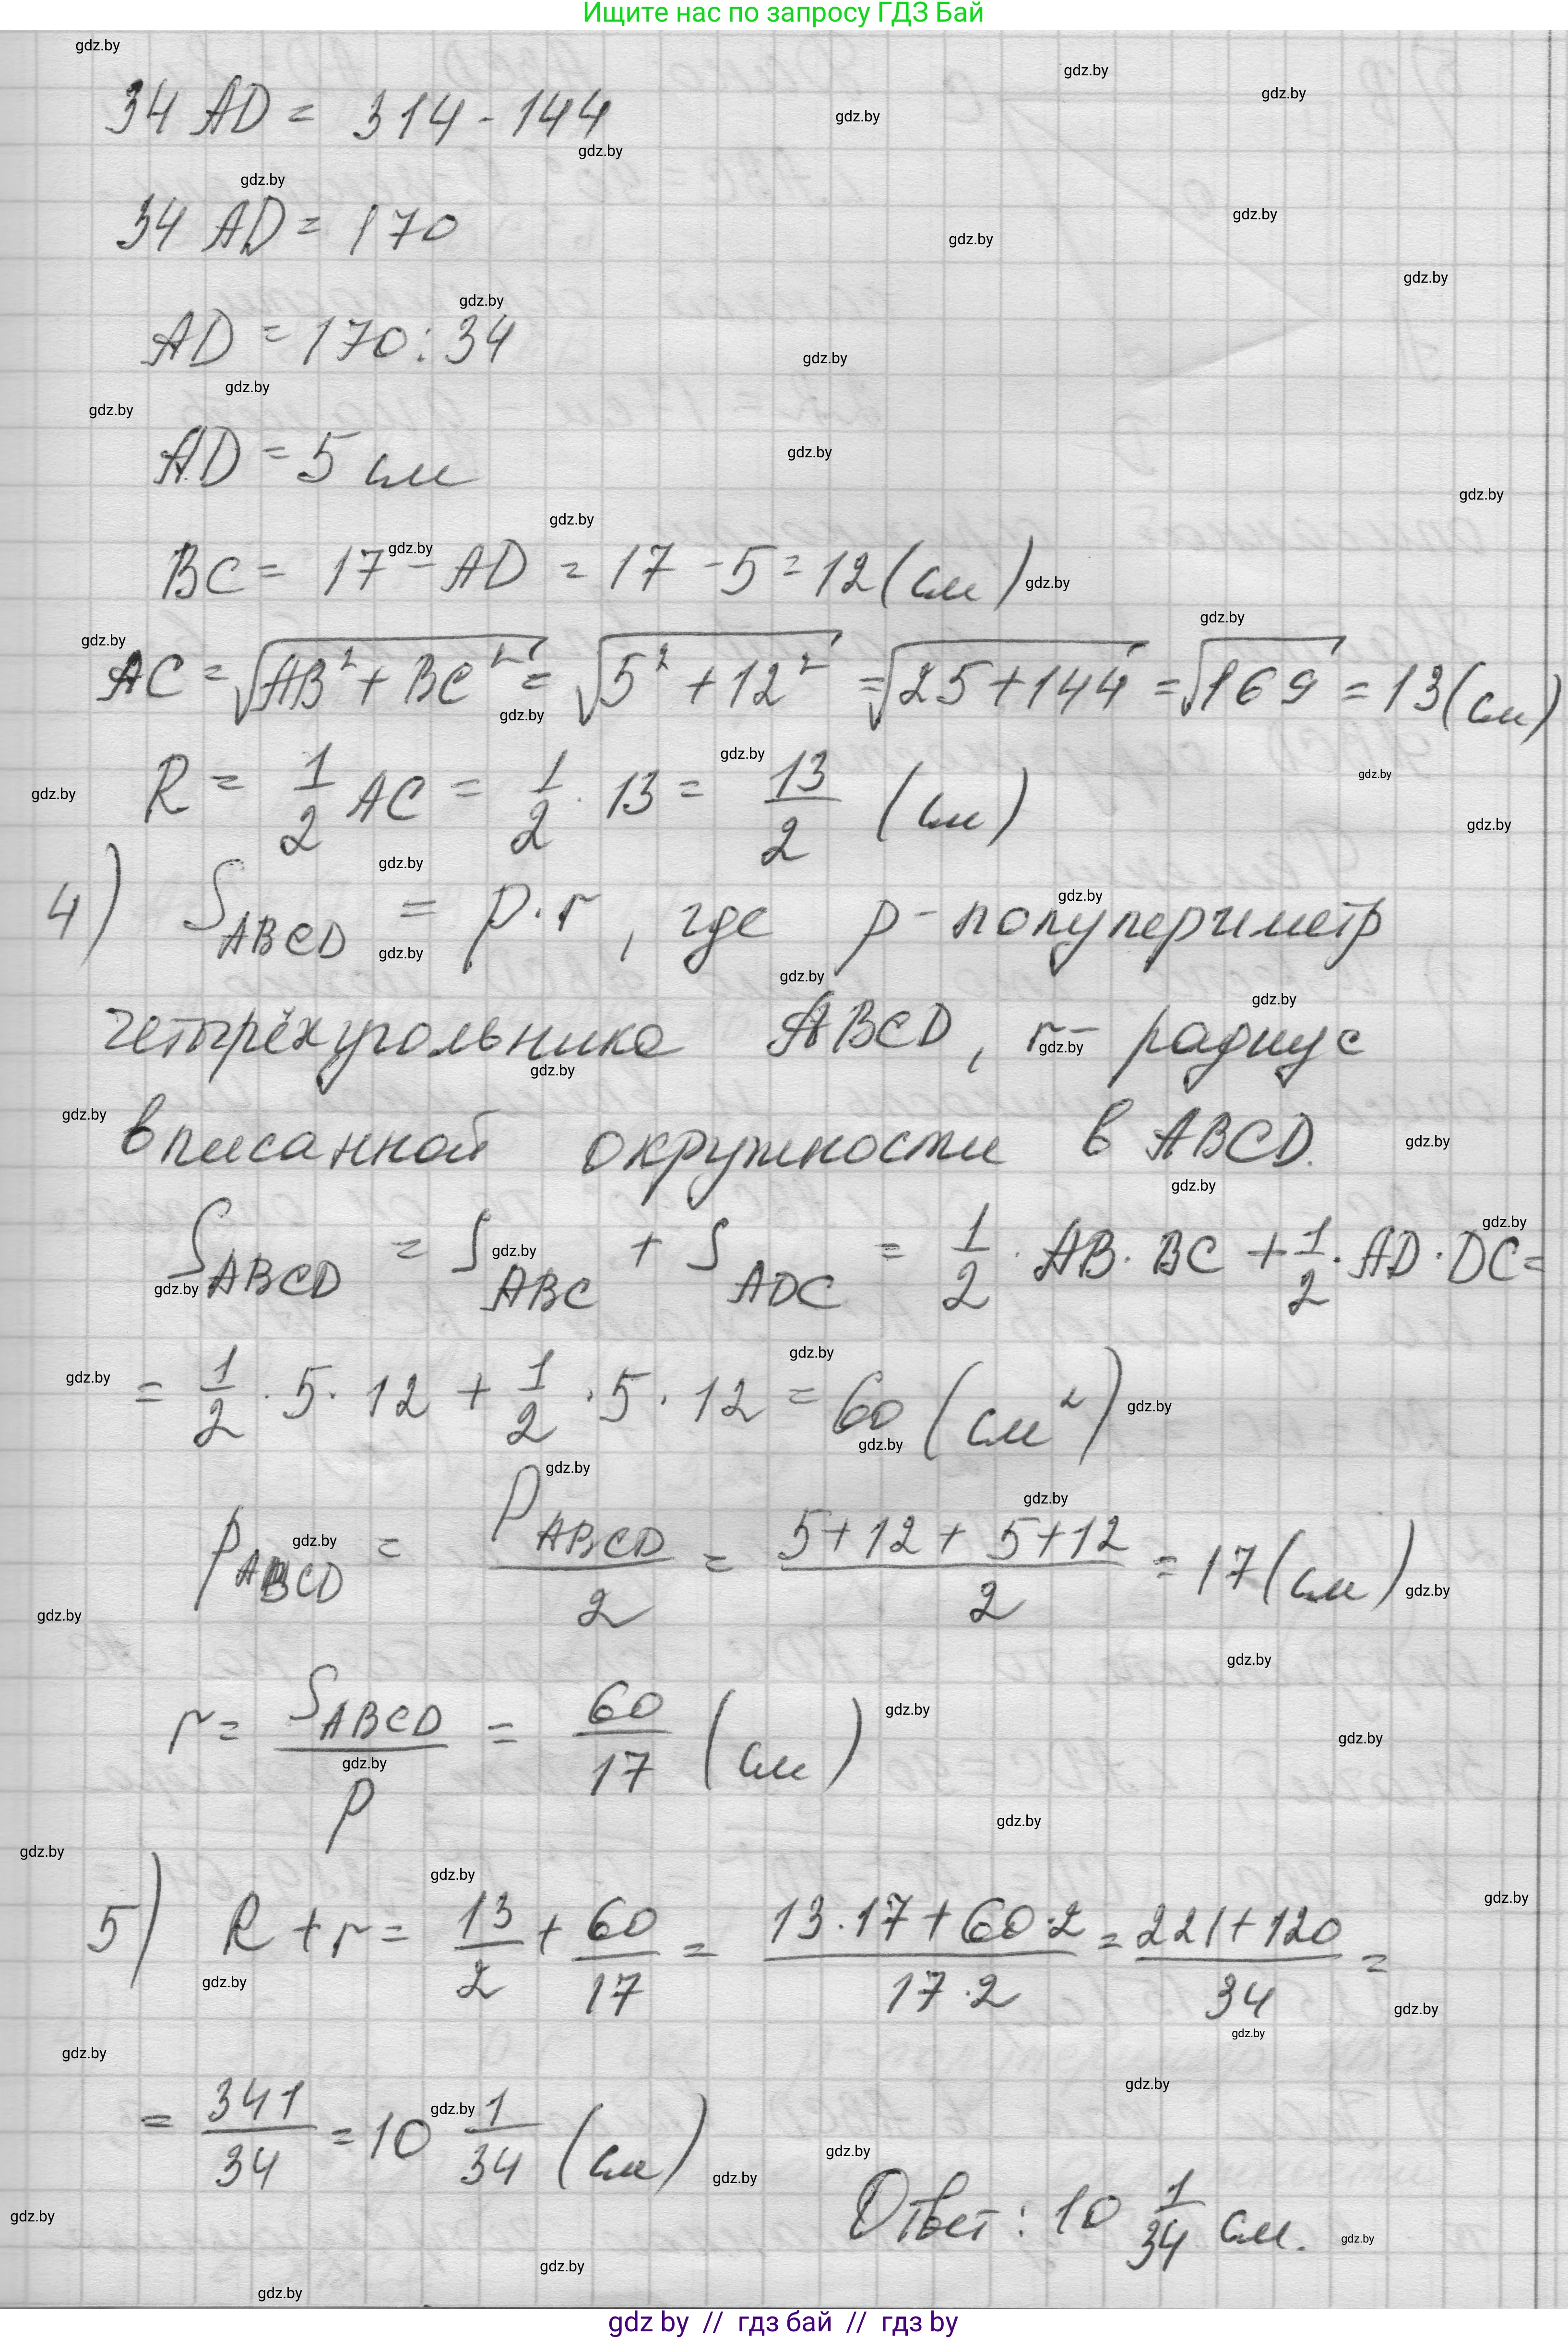 Ищите нас по запросу ГДЗ Бай
34 AD = 314 - 144
34 AD = 170
AD = 170 : 34
AD = 5 см
BC = 17 - AD = 17 - 5 = 12 (см)
AC = √(AB² + BC²) = √(5² + 12²) = √(25 + 144) = √169 = 13 (см)
R = 1/2 AC = 1/2 · 13 = 13/2 (см)
4) S_ABCD = p · r, где p - полупериметр
четырёхугольника ABCD, r - радиус
вписанной окружности в ABCD.
S_ABCD = S_ABC + S_ADC = 1/2 · AB · BC + 1/2 · AD · DC =
= 1/2 · 5 · 12 + 1/2 · 5 · 12 = 60 (см²)
p_ABCD = P_ABCD/2 = (5 + 12 + 5 + 12)/2 = 17 (см)
r = S_ABCD/p = 60/17 (см)
5) R + r = 13/2 + 60/17 = (13 · 17 + 60 · 2)/(17 · 2) = (221 + 120)/34 =
= 341/34 = 10 1/34 (см)
Ответ: 10 1/34 см.
gdz by // гдз бай // гдз by